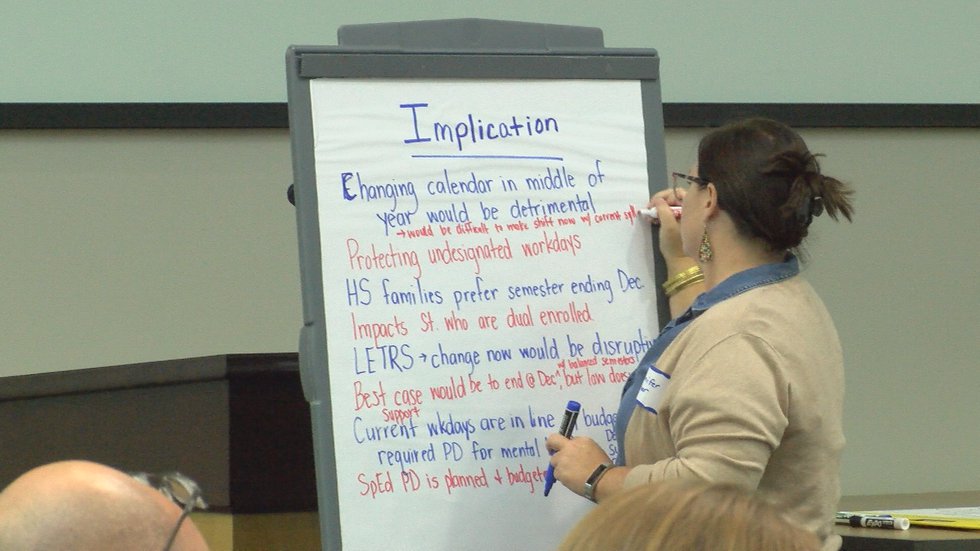 Implication
Changing calendar in middle of
year would be detrimental
→ would be difficult to make shift now w/ current
Protecting undesignated workdays
HS families prefer semester ending Dec.
Impacts St. who are dual enrolled
LETRS → change now would be
w/ balanced semesters
Best case would be to end @ Dec^, but law
support
Current wkdays are in line
required PD for mental
SpEd PD is planned +
EXPO